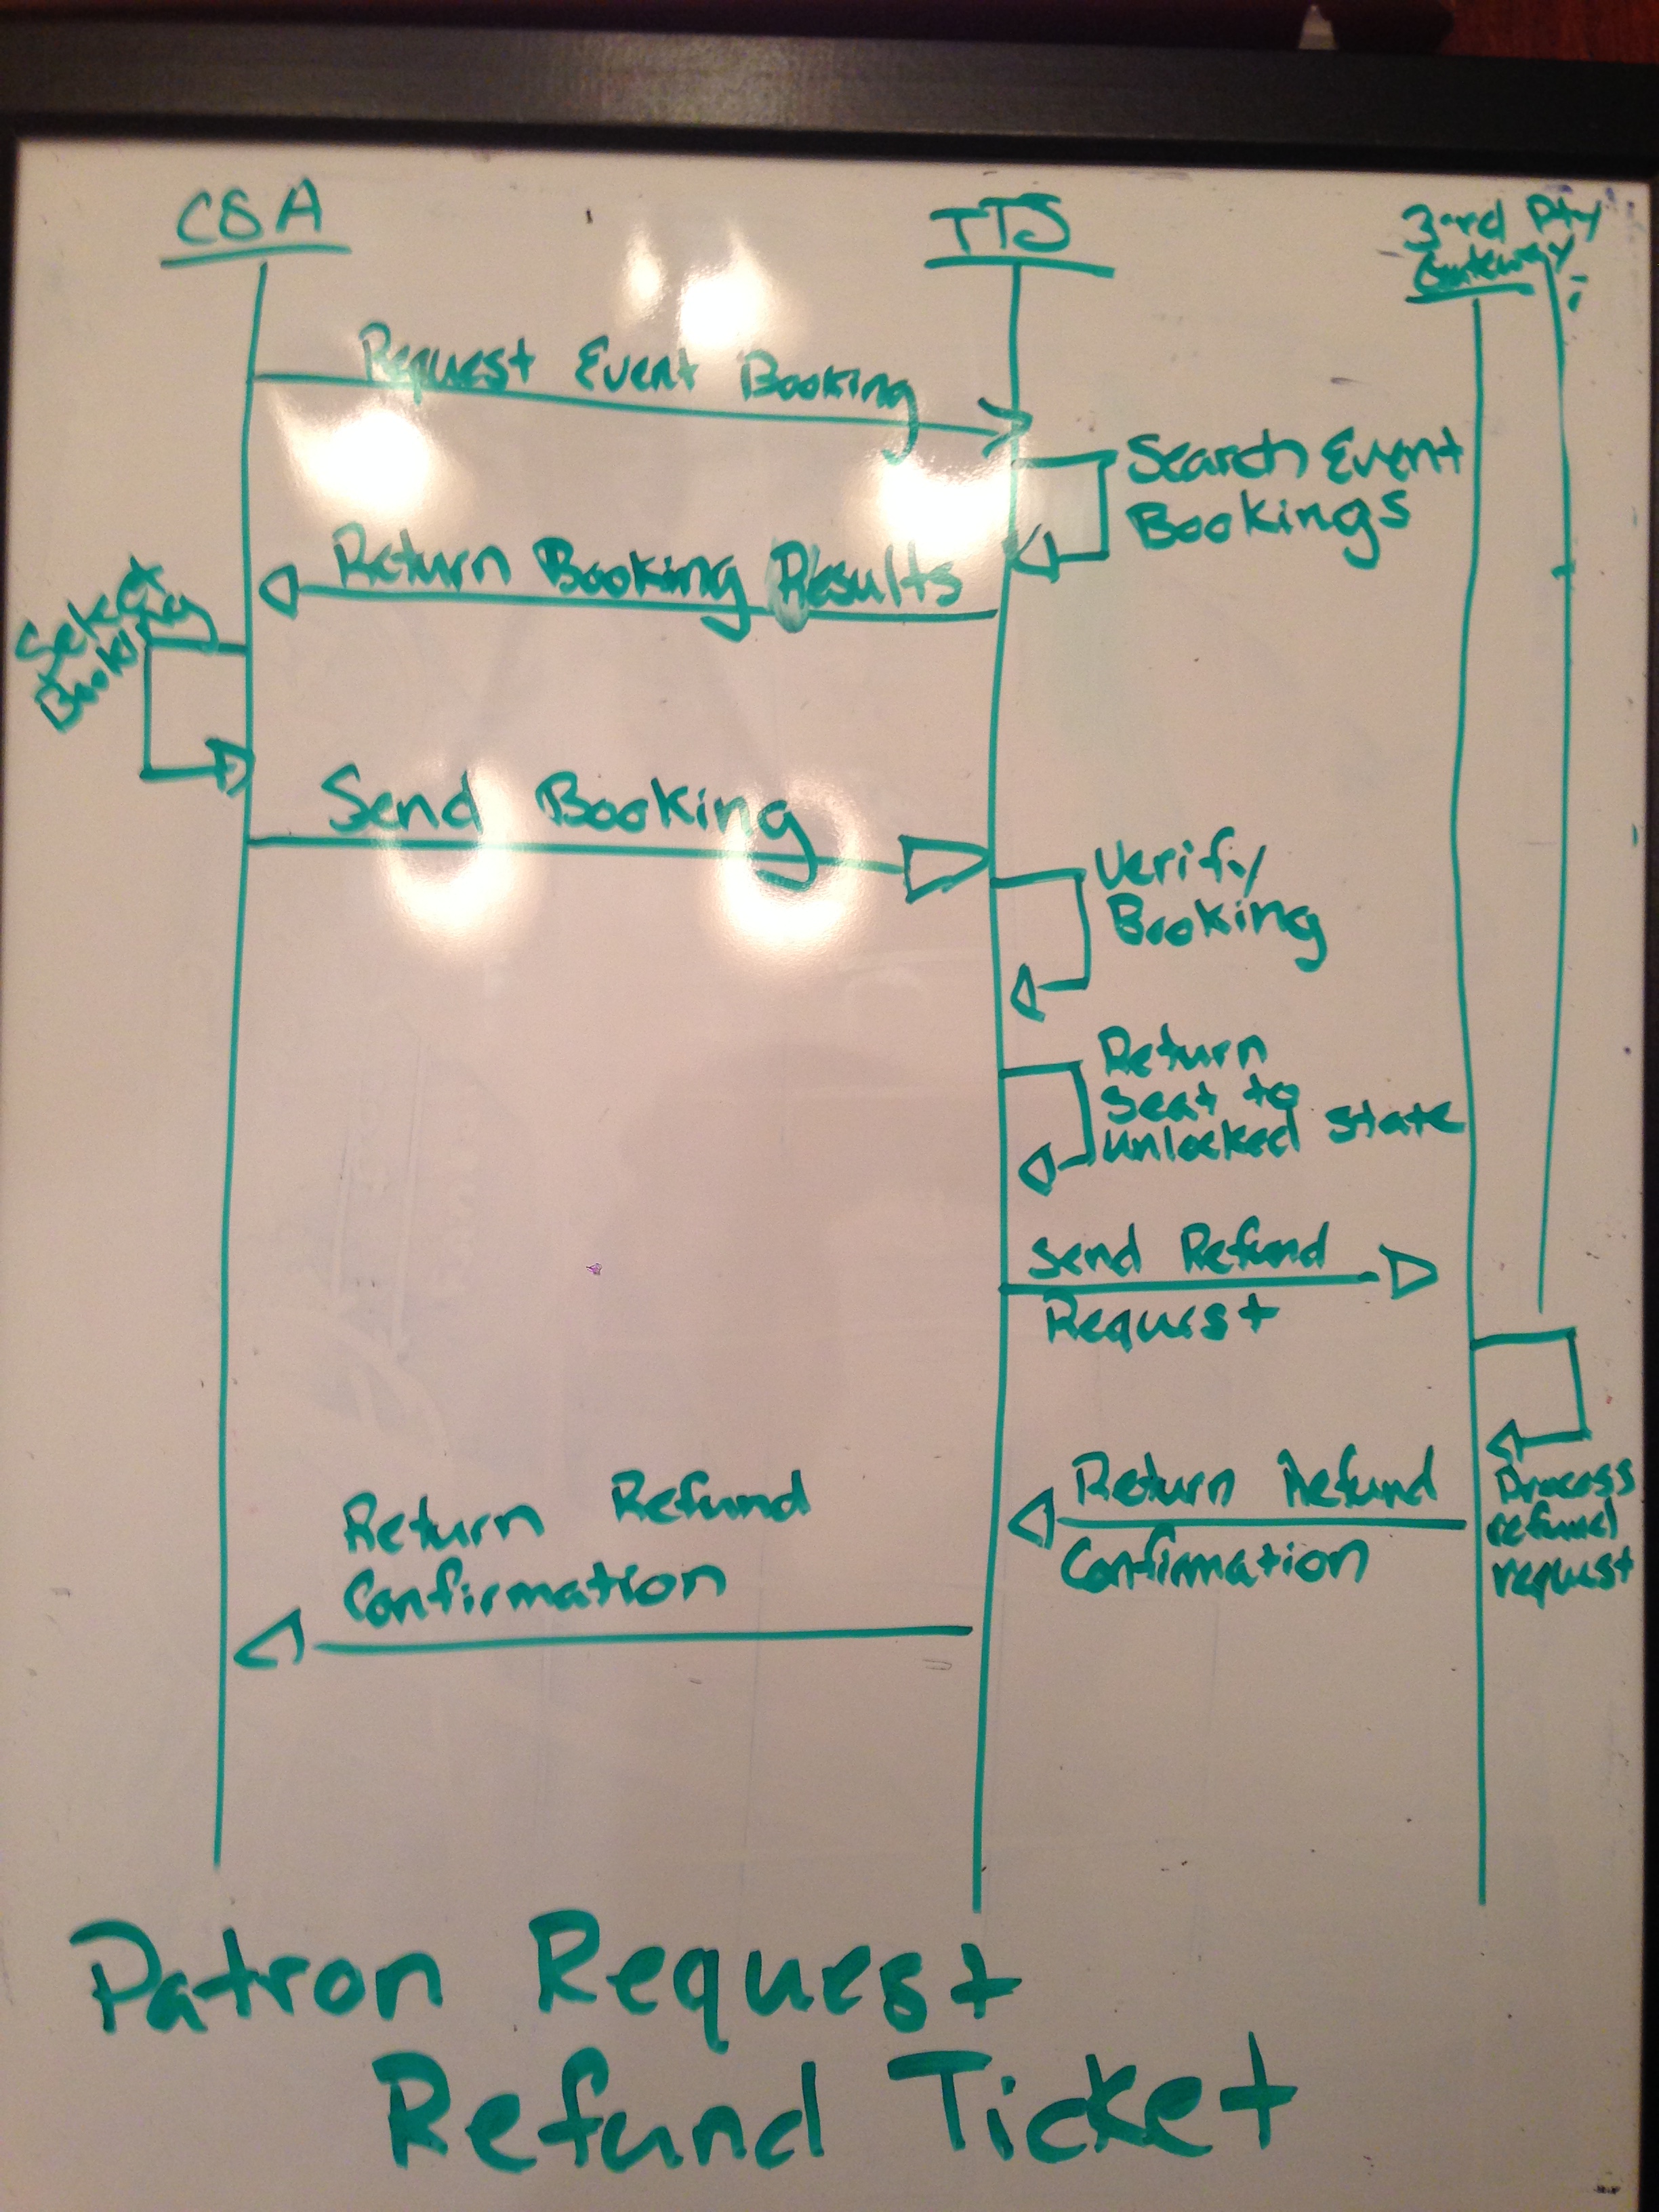 CSA
TTS
3rd Pty
Gateway
Request Event Booking
Search Event
Bookings
Return Booking Results
Select
Booking
Send Booking
Verify
Booking
Return
Seat to
unlocked state
Send Refund
Request
Process
refund
request
Return Refund
Confirmation
Return Refund
Confirmation
Patron Request
Refund Ticket